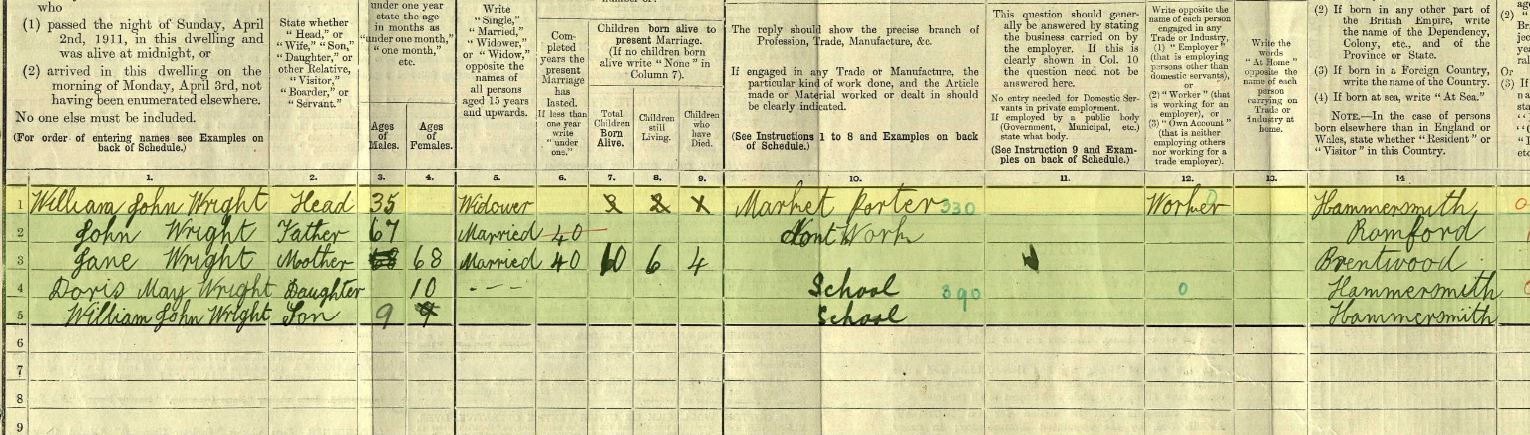 who
(1) passed the night of Sunday, April
2nd, 1911, in this dwelling and
was alive at midnight, or
(2) arrived in this dwelling on the
morning of Monday, April 3rd, not
having been enumerated elsewhere.
No one else must be included.
(For order of entering names see Examples on
back of Schedule.)
State whether
"Head," or
"Wife," "Son,"
"Daughter," or
other Relative,
"Visitor,"
"Boarder," or
"Servant."
under one year
state the age
in months as
"under one month,"
"one month,"
etc.
Ages
of
Males.
Ages
of
Females.
Write
"Single,"
"Married,"
"Widower,"
or "Widow,"
opposite the
names of
all persons
aged 15 years
and upwards.
Com-
pleted
years the
present
Marriage
has
lasted.
If less than
one year
write
"under
one."
Children born alive to
present Marriage.
(If no children born
alive write "None" in
Column 7).
Total
Children
Born
Alive.
Children
still
Living.
Children
who
have
Died.
The reply should show the precise branch of
Profession, Trade, Manufacture, &c.
If engaged in any Trade or Manufacture, the
particular kind of work done, and the Article
made or Material worked or dealt in should
be clearly indicated.
(See Instructions 1 to 8 and Examples on back
of Schedule.)
This question should gener-
ally be answered by stating
the business carried on by
the employer. If this is
clearly shown in Col. 10
the question need not be
answered here.
No entry needed for Domestic Ser-
vants in private employment.
If employed by a public body
(Government, Municipal, etc.)
state what body.
(See Instruction 9 and Exam-
ples on back of Schedule.)
Write opposite the
name of each person
engaged in any
Trade or Industry,
(1) "Employer"
(that is employing
persons other than
domestic servants),
or
(2) "Worker" (that
is working for an
employer), or
(3) "Own Account"
(that is neither
employing others
nor working for a
trade employer).
Write the
words
"At Home"
opposite the
name of each
person
carrying on
Trade or
Industry at
home.
(2) If born in any other part of
the British Empire, write
the name of the Dependency,
Colony, etc., and of the
Province or State.
(3) If born in a Foreign Country,
write the name of the Country.
(4) If born at sea, write "At Sea."
NOTE.—In the case of persons
born elsewhere than in England or
Wales, state whether "Resident" or
"Visitor" in this Country.
1. 2. 3. 4. 5. 6. 7. 8. 9. 10. 11. 12. 13. 14
1 William John Wright Head 35 Widower 3 2 Market Porter 330 Worker Hammersmith
2 John Wright Father 67 Married 40 dont Work Romford
3 Jane Wright Mother 68 Married 40 10 6 4 Brentwood
4 Doris May Wright Daughter 10 - - - School 390 0 Hammersmith
5 William John Wright Son 9 9 School Hammersmith
6
7
8
9